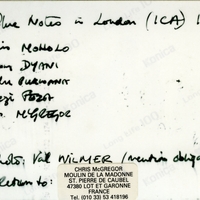 Blue Notes in London (ICA) 1
MOHOLO
DYANI
PUKWANA
FEZA
McGREGOR
Val WILMER (mention obliga
return to:
CHRIS McGREGOR
MOULIN DE LA MADONNE
ST. PIERRE DE CAUBEL
47380 LOT ET GARONNE
FRANCE
Tel. (010 33) 53 418196